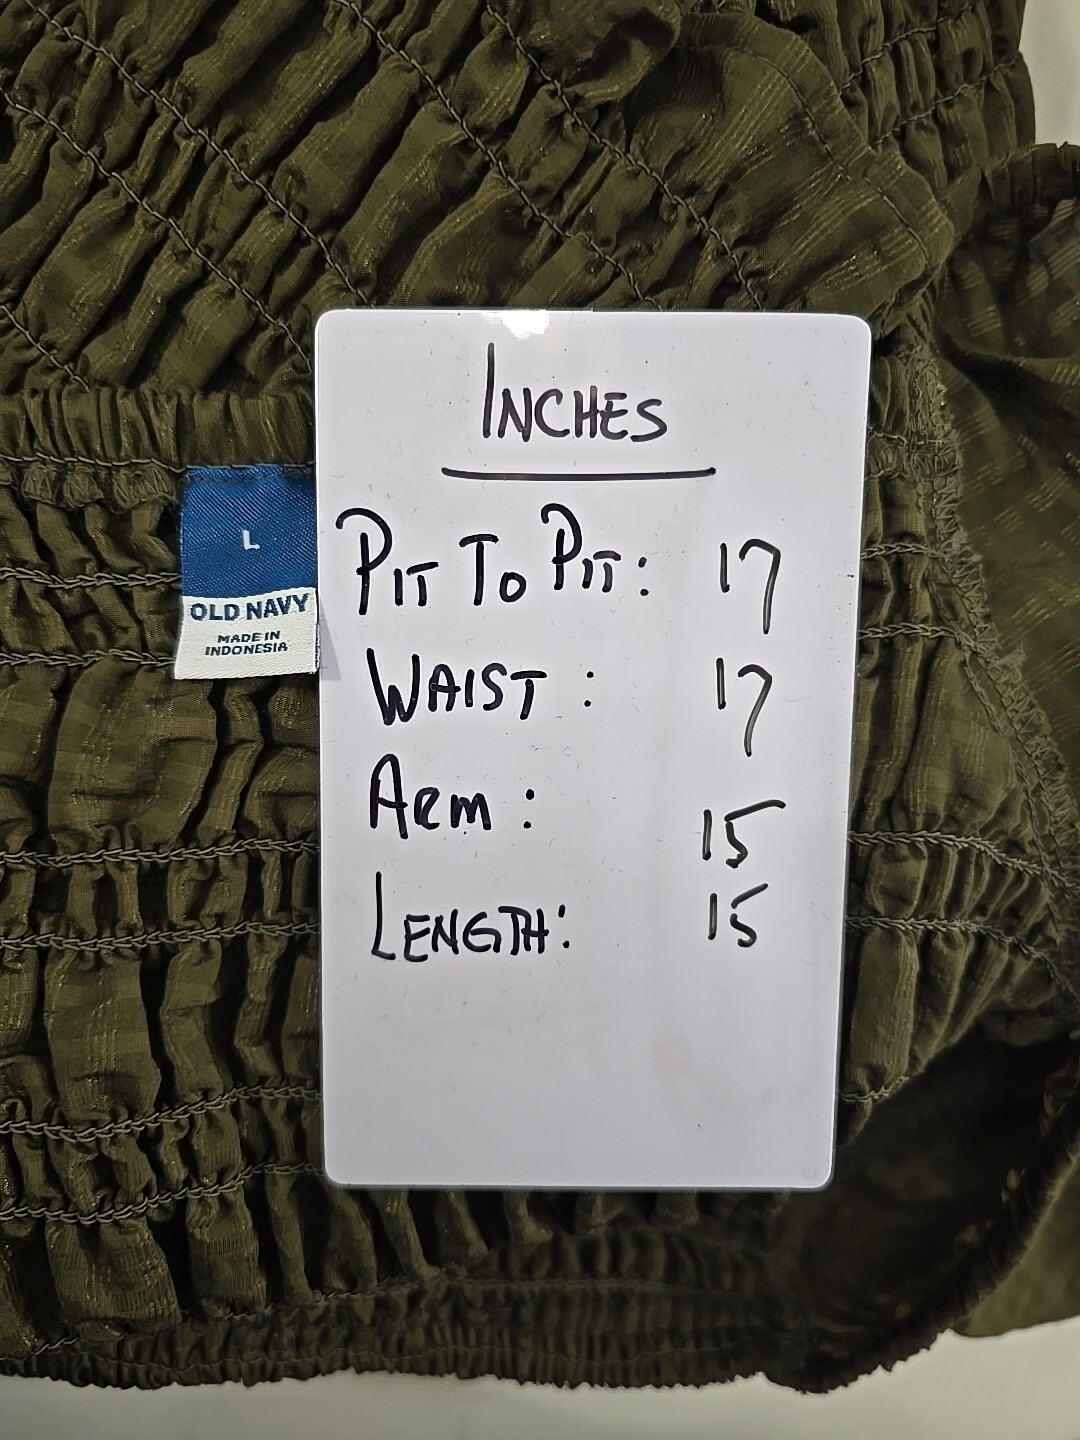 INCHES
PIT TO PIT: 17
WAIST: 17
ARM: 15
LENGTH: 15
L
OLD NAVY
MADE IN
INDONESIA